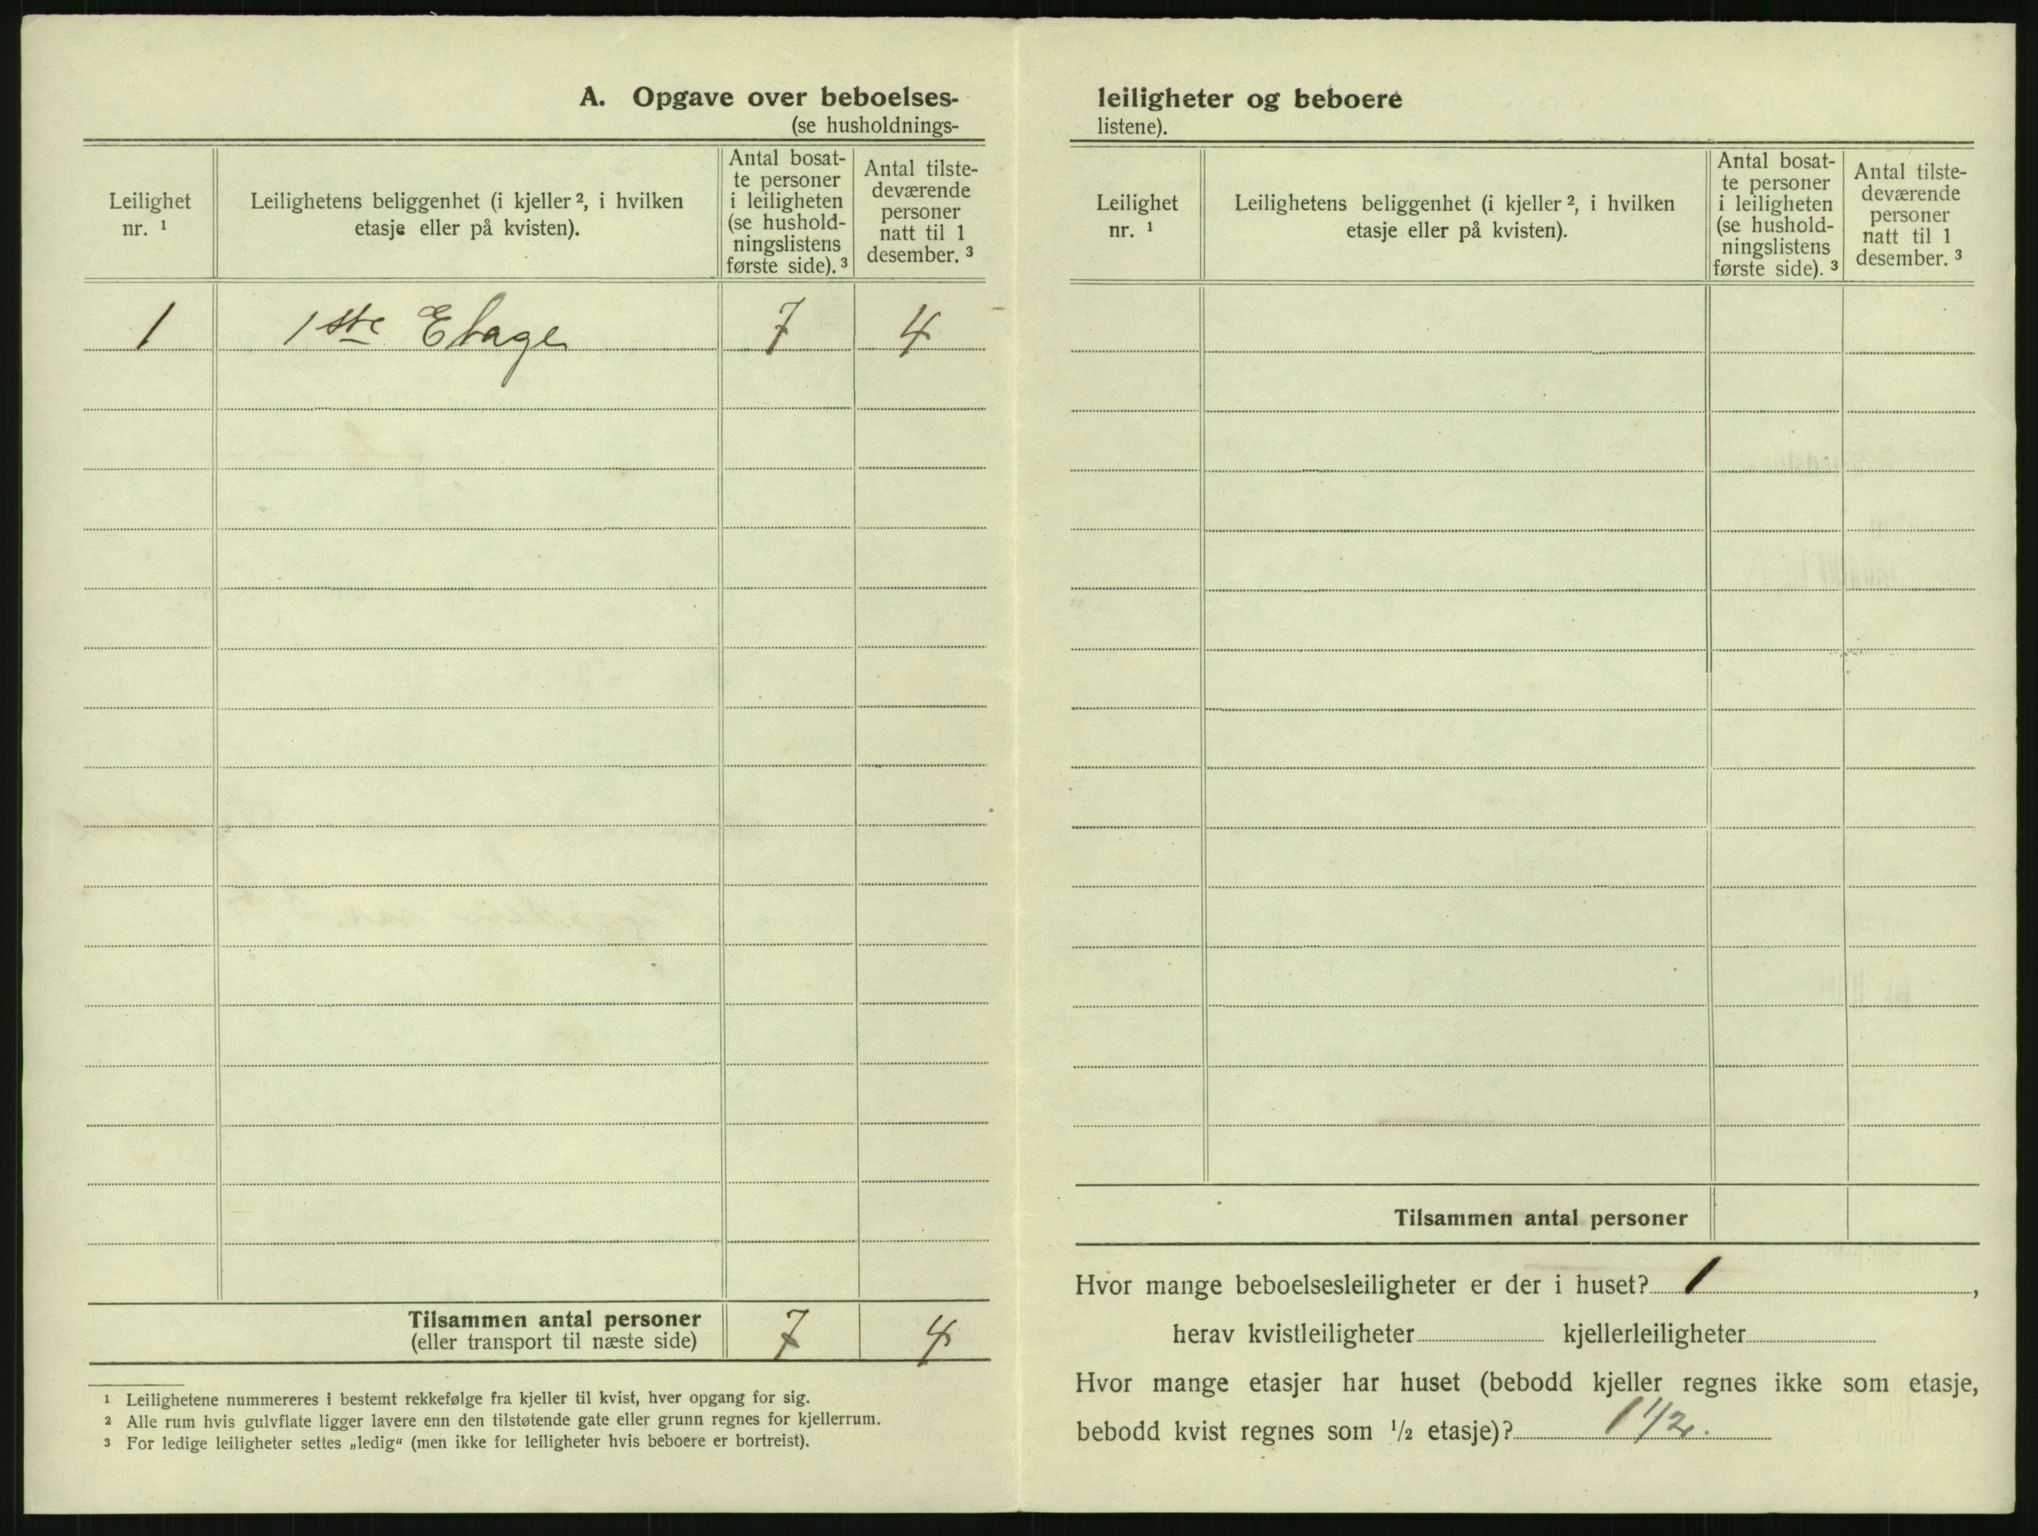 A. Opgave over beboelses-
(se husholdnings-
Leilighet
nr. ¹
Leilighetens beliggenhet (i kjeller ², i hvilken
etasje eller på kvisten).
Antal bosat-
te personer
i leiligheten
(se hushold-
ningslistens
første side). ³
Antal tilste-
deværende
personer
natt til 1
desember. ³
1 1ste Etage 7 4
Tilsammen antal personer 7 4
(eller transport til næste side)
¹ Leilighetene nummereres i bestemt rekkefølge fra kjeller til kvist, hver opgang for sig.
² Alle rum hvis gulvflate ligger lavere enn den tilstøtende gate eller grunn regnes for kjellerrum.
³ For ledige leiligheter settes „ledig“ (men ikke for leiligheter hvis beboere er bortreist).
leiligheter og beboere
listene).
Leilighet
nr. ¹
Leilighetens beliggenhet (i kjeller ², i hvilken
etasje eller på kvisten).
Antal bosat-
te personer
i leiligheten
(se hushold-
ningslistens
første side). ³
Antal tilste-
deværende
personer
natt til 1
desember. ³
Tilsammen antal personer
Hvor mange beboelsesleiligheter er der i huset? 1 ,
herav kvistleiligheter kjellerleiligheter
Hvor mange etasjer har huset (bebodd kjeller regnes ikke som etasje,
bebodd kvist regnes som ½ etasje)? 1 1/2.